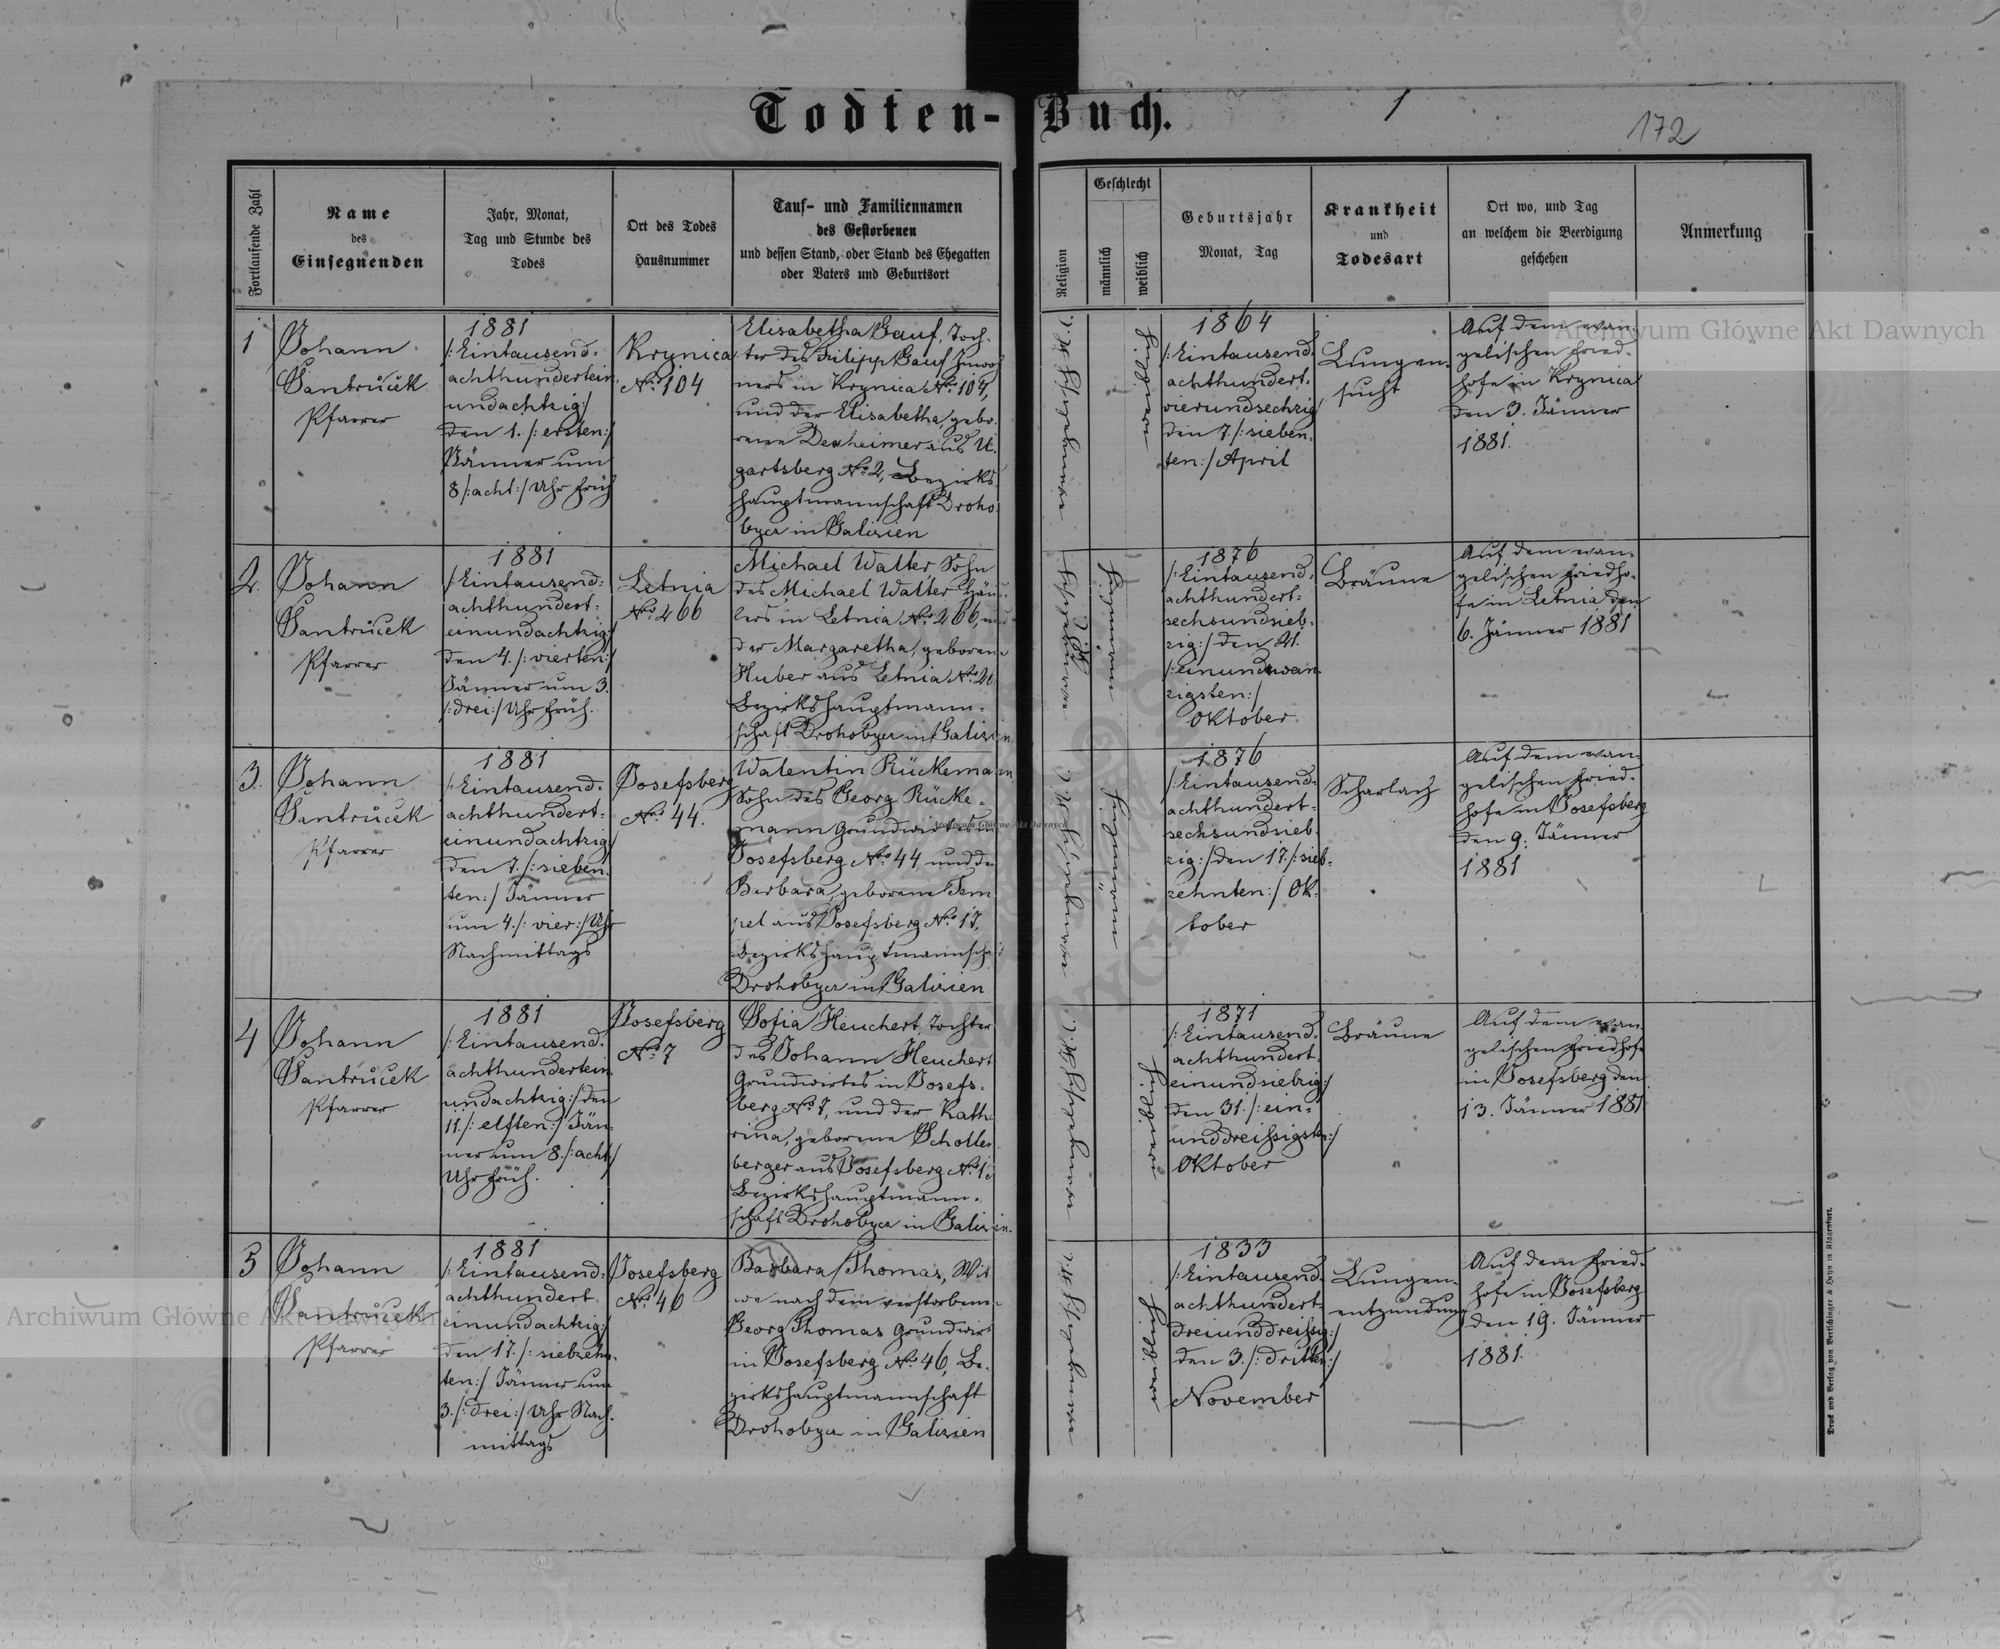 Todten-Buch.
1
172
Fortlaufende Zahl
Name
des
Einsegnenden
Jahr, Monat,
Tag und Stunde des
Todes
Ort des Todes
Hausnummer
Tauf- und Familiennamen
des Gestorbenen
und dessen Stand, oder Stand des Ehegatten
oder Vaters und Geburtsort
Religion
Geschlecht
männlich
weiblich
Geburtsjahr
Monat, Tag
Krankheit
und
Todesart
Ort wo, und Tag
an welchem die Beerdigung
geschehen
Anmerkung
1
Johann
Santrůček
Pfarrer
1881
/:Eintausend-
achthundertein
undachtzig:/
den 1. /:ersten:/
Jänner um
8 /:acht:/ Uhr früh
Krynica
No 104
Elisabetha Gauf, Toch-
ter des Filipp Gauf Inwoh
ners in Krynica No 104,
und der Elisabetha, gebo-
rene Dexheimer aus U.
gartsberg No 2, Bezirks
hauptmannschaft Droho
bycz in Galizien
1864
/:Eintausend
achthundert-
vierundsechzig
den 7. /:sieben-
ten:/ April
Lungen-
sucht
Auf dem evan-
gelischen Fried-
hofe in Krynica
den 3. Jänner
1881.
2.
Johann
Santrůček
Pfarrer
1881
/:Eintausend-
achthundert-
einundachtzig:/
den 4. /:vierten:/
Jänner um 3.
/:drei:/ Uhr früh.
Letnia
No 266
Michael Walter Sohn
des Michael Walter Häu-
lers in Letnia No 266, und
der Margaretha, geborene
Huber aus Letnia No 26
Bezirkshauptmann-
schaft Drohobycz in Galizien
1876
/:Eintausend-
achthundert-
sechsundsieb-
zig:/ den 21.
/:einundzwan-
zigsten:/
Oktober
Bräune
Auf dem evan-
gelischen Friedho-
fe in Letnia den
6. Jänner 1881
3.
Johann
Santrůček
Pfarrer
1881
/:Eintausend-
achthundert-
einundachtzig:/
den 7. /:sieben-
ten:/ Jänner
um 4. /:vier:/ Uhr
Nachmittags
Josefsberg
No 44.
Walentin Rückemann
Sohn des Georg Rücke-
mann Grundwirtes in
Josefsberg No 44 und der
Barbara, geborene Tem
pel aus Josefsberg No 17,
Bezirkshauptmannschaft
Drohobycz in Galizien
1876
/:Eintausend-
achthundert-
sechsundsieb-
zig:/ den 17. /:sieb-
zehnten:/ Ok-
tober
Scharlach
Auf dem evan-
gelischen Fried-
hofe in Josefsberg
den 9. Jänner
1881
4
Johann
Santrůček
Pfarrer
1881
/:Eintausend-
achthundertein
undachtzig:/ den
11. /:elften:/ Jän-
ner um 8. /:acht:/
Uhr früh.
Josefsberg
No 7
Sofia Heuchert, Tochter
des Johann Heuchert
Grundwirtes in Josefs-
berg No 7, und der Katha
rina, geborene Schollen
berger aus Josefsberg No
Bezirkshauptmann-
schaft Drohobycz in Galizien.
1871
/:Eintausend-
achthundert-
einundsiebzig:/
den 31. /:ein-
unddreißigsten:/
Oktober
Bräune
Auf dem evan-
gelischen Friedhofe
in Josefsberg den
13. Jänner 1881
5
Johann
Santrůček
Pfarrer
1881
/:Eintausend-
achthundert-
einundachtzig:/
den 17. /:siebzehn-
ten:/ Jänner um
3. /:drei:/ Uhr Nach-
mittags
Josefsberg
No 46
Barbara Thomas, Wit
we nach dem verstorbenen
Georg Thomas Grundwirt
in Josefsberg No 46, Be-
zirkshauptmannschaft
Drohobycz in Galizien
1833
/:Eintausend-
achthundert-
dreiunddreißig:/
den 3. /:dritten:/
November
Lungen-
entzündung
Auf dem Fried-
hofe in Josefsberg
den 19. Jänner
1881.
Druck und Verlag von Bertschinger & Heyn in Klagenfurt.
Archiwum Główne Akt Dawnych
Archiwum Główne Akt Dawnych
Archiwum Główne Akt Dawnych